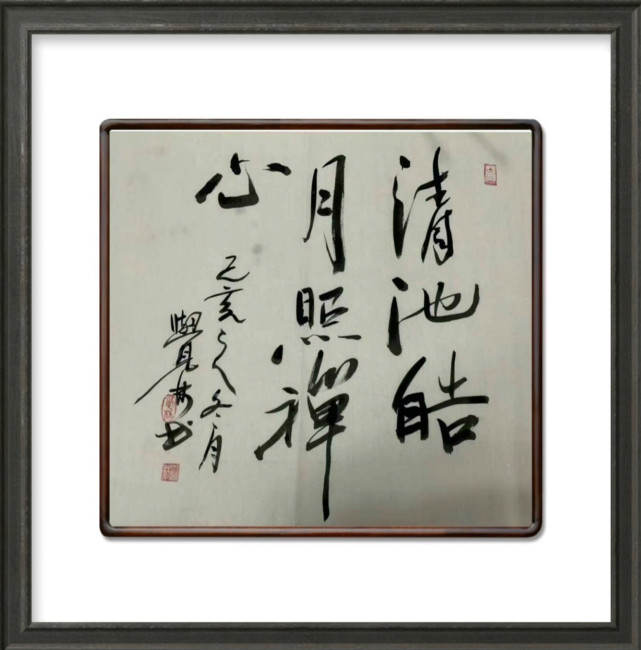 清池皓
月照禪
心
己亥之冬月